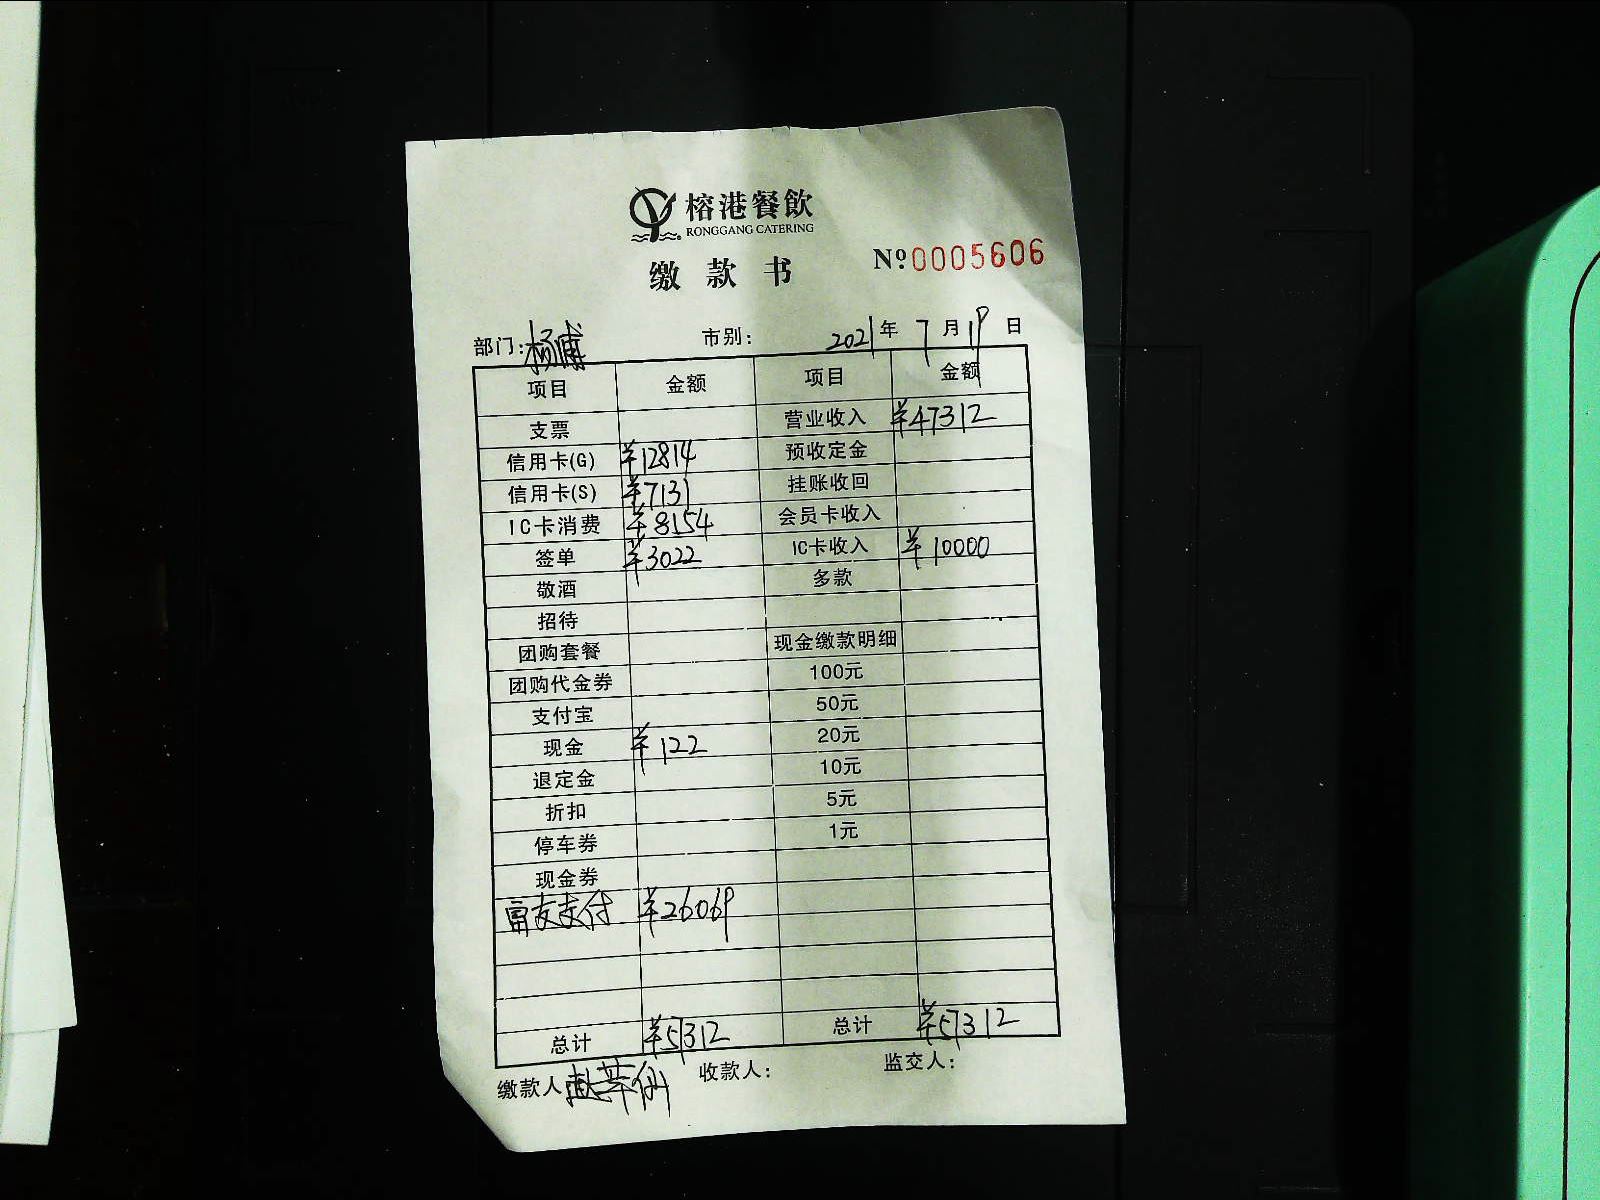 榕港餐飲
RONGGANG CATERING
缴款书
№0005606
部门:杨浦 市别: 2021年7月19日
项目 金额 项目 金额
支票 营业收入 ¥47312
信用卡(G) ¥12814 预收定金
信用卡(S) ¥7131 挂账收回
IC卡消费 ¥8154 会员卡收入
签单 ¥3022 IC卡收入 ¥10000
敬酒 多款
招待
团购套餐 现金缴款明细
团购代金券 100元
支付宝 50元
现金 ¥122 20元
退定金 10元
折扣 5元
停车券 1元
现金券
富友支付 ¥26069
总计 ¥57312 总计 ¥57312
缴款人 收款人: 监交人: